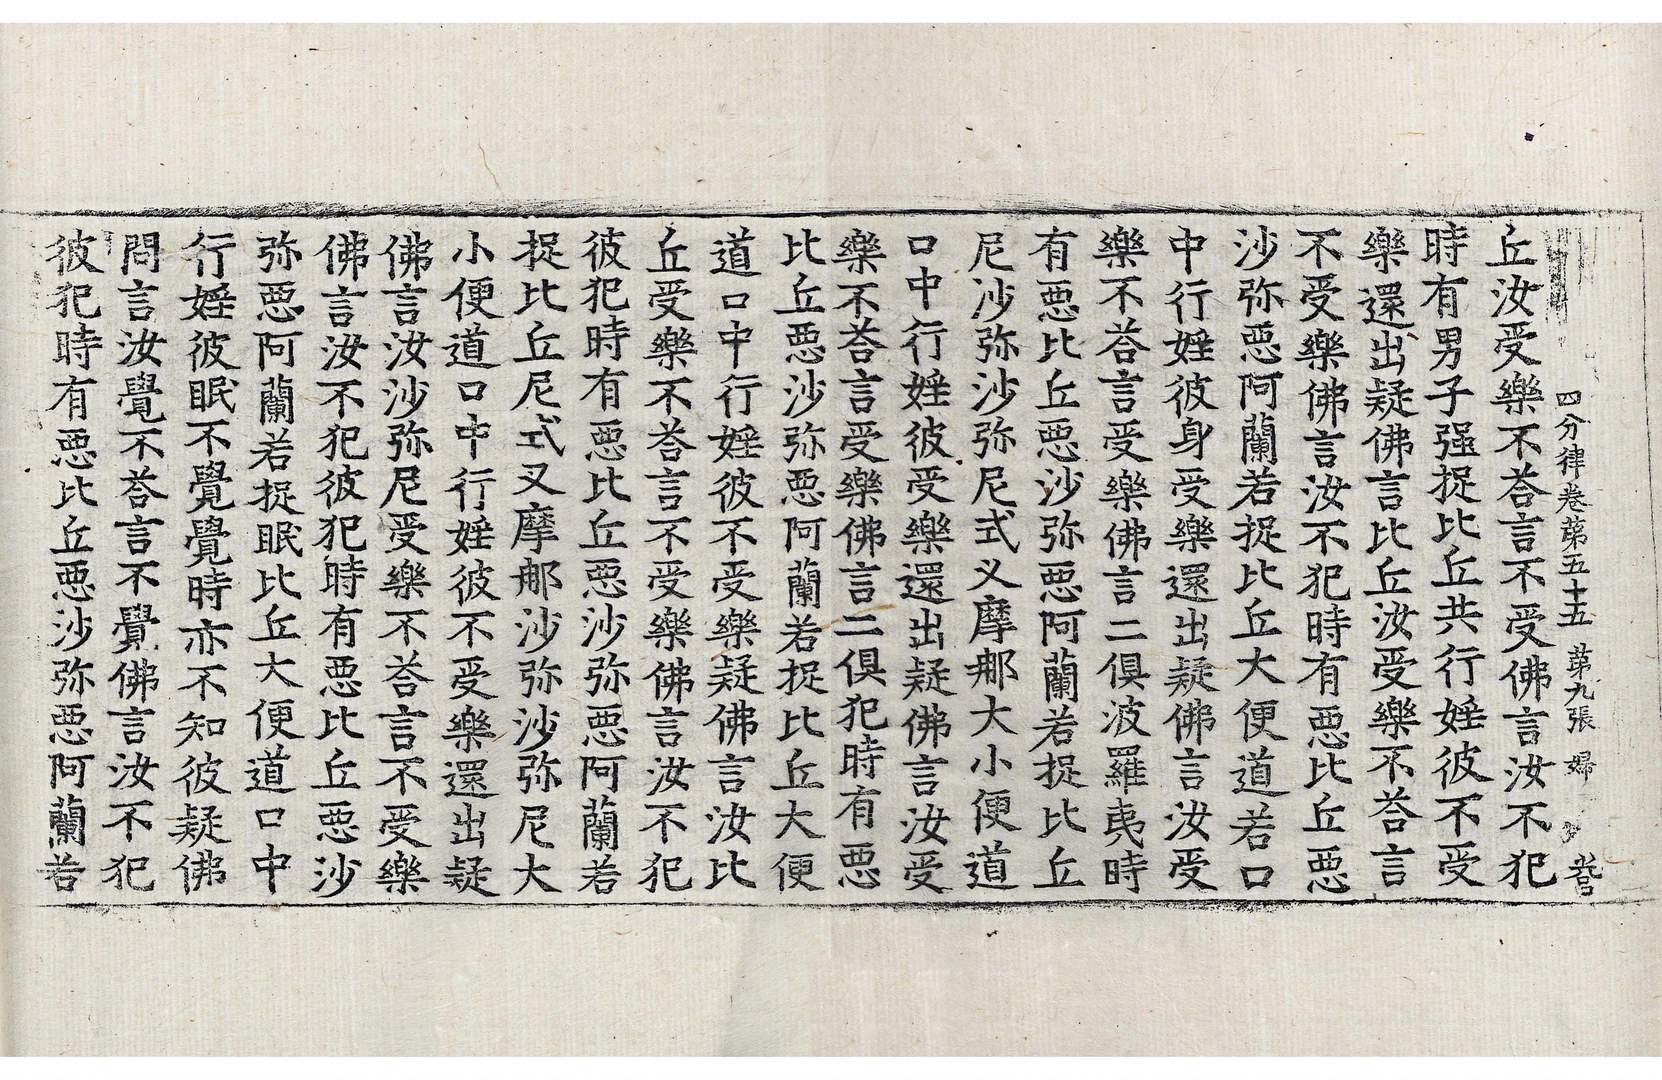 四分律卷第五十五 第九張 婦
丘汝受樂不荅言不受佛言汝不犯
時有男子强捉比丘共行婬彼不受
樂還出疑佛言比丘汝受樂不荅言
不受樂佛言汝不犯時有惡比丘惡
沙弥惡阿蘭若捉比丘大便道若口
中行婬彼身受樂還出疑佛言汝受
樂不荅言受樂佛言二俱波羅夷時
有惡比丘惡沙弥惡阿蘭若捉比丘
尼沙弥沙弥尼式叉摩那大小便道
口中行婬彼受樂還出疑佛言汝受
樂不荅言受樂佛言二俱犯時有惡
比丘惡沙弥惡阿蘭若捉比丘大便
道口中行婬彼不受樂疑佛言汝比
丘受樂不荅言不受樂佛言汝不犯
彼犯時有惡比丘惡沙弥惡阿蘭若
捉比丘尼式叉摩那沙弥沙弥尼大
小便道口中行婬彼不受樂還出疑
佛言汝沙弥尼受樂不荅言不受樂
佛言汝不犯彼犯時有惡比丘惡沙
弥惡阿蘭若捉眠比丘大便道口中
行婬彼眠不覺覺時亦不知彼疑佛
問言汝覺不荅言不覺佛言汝不犯
彼犯時有惡比丘惡沙弥惡阿蘭若